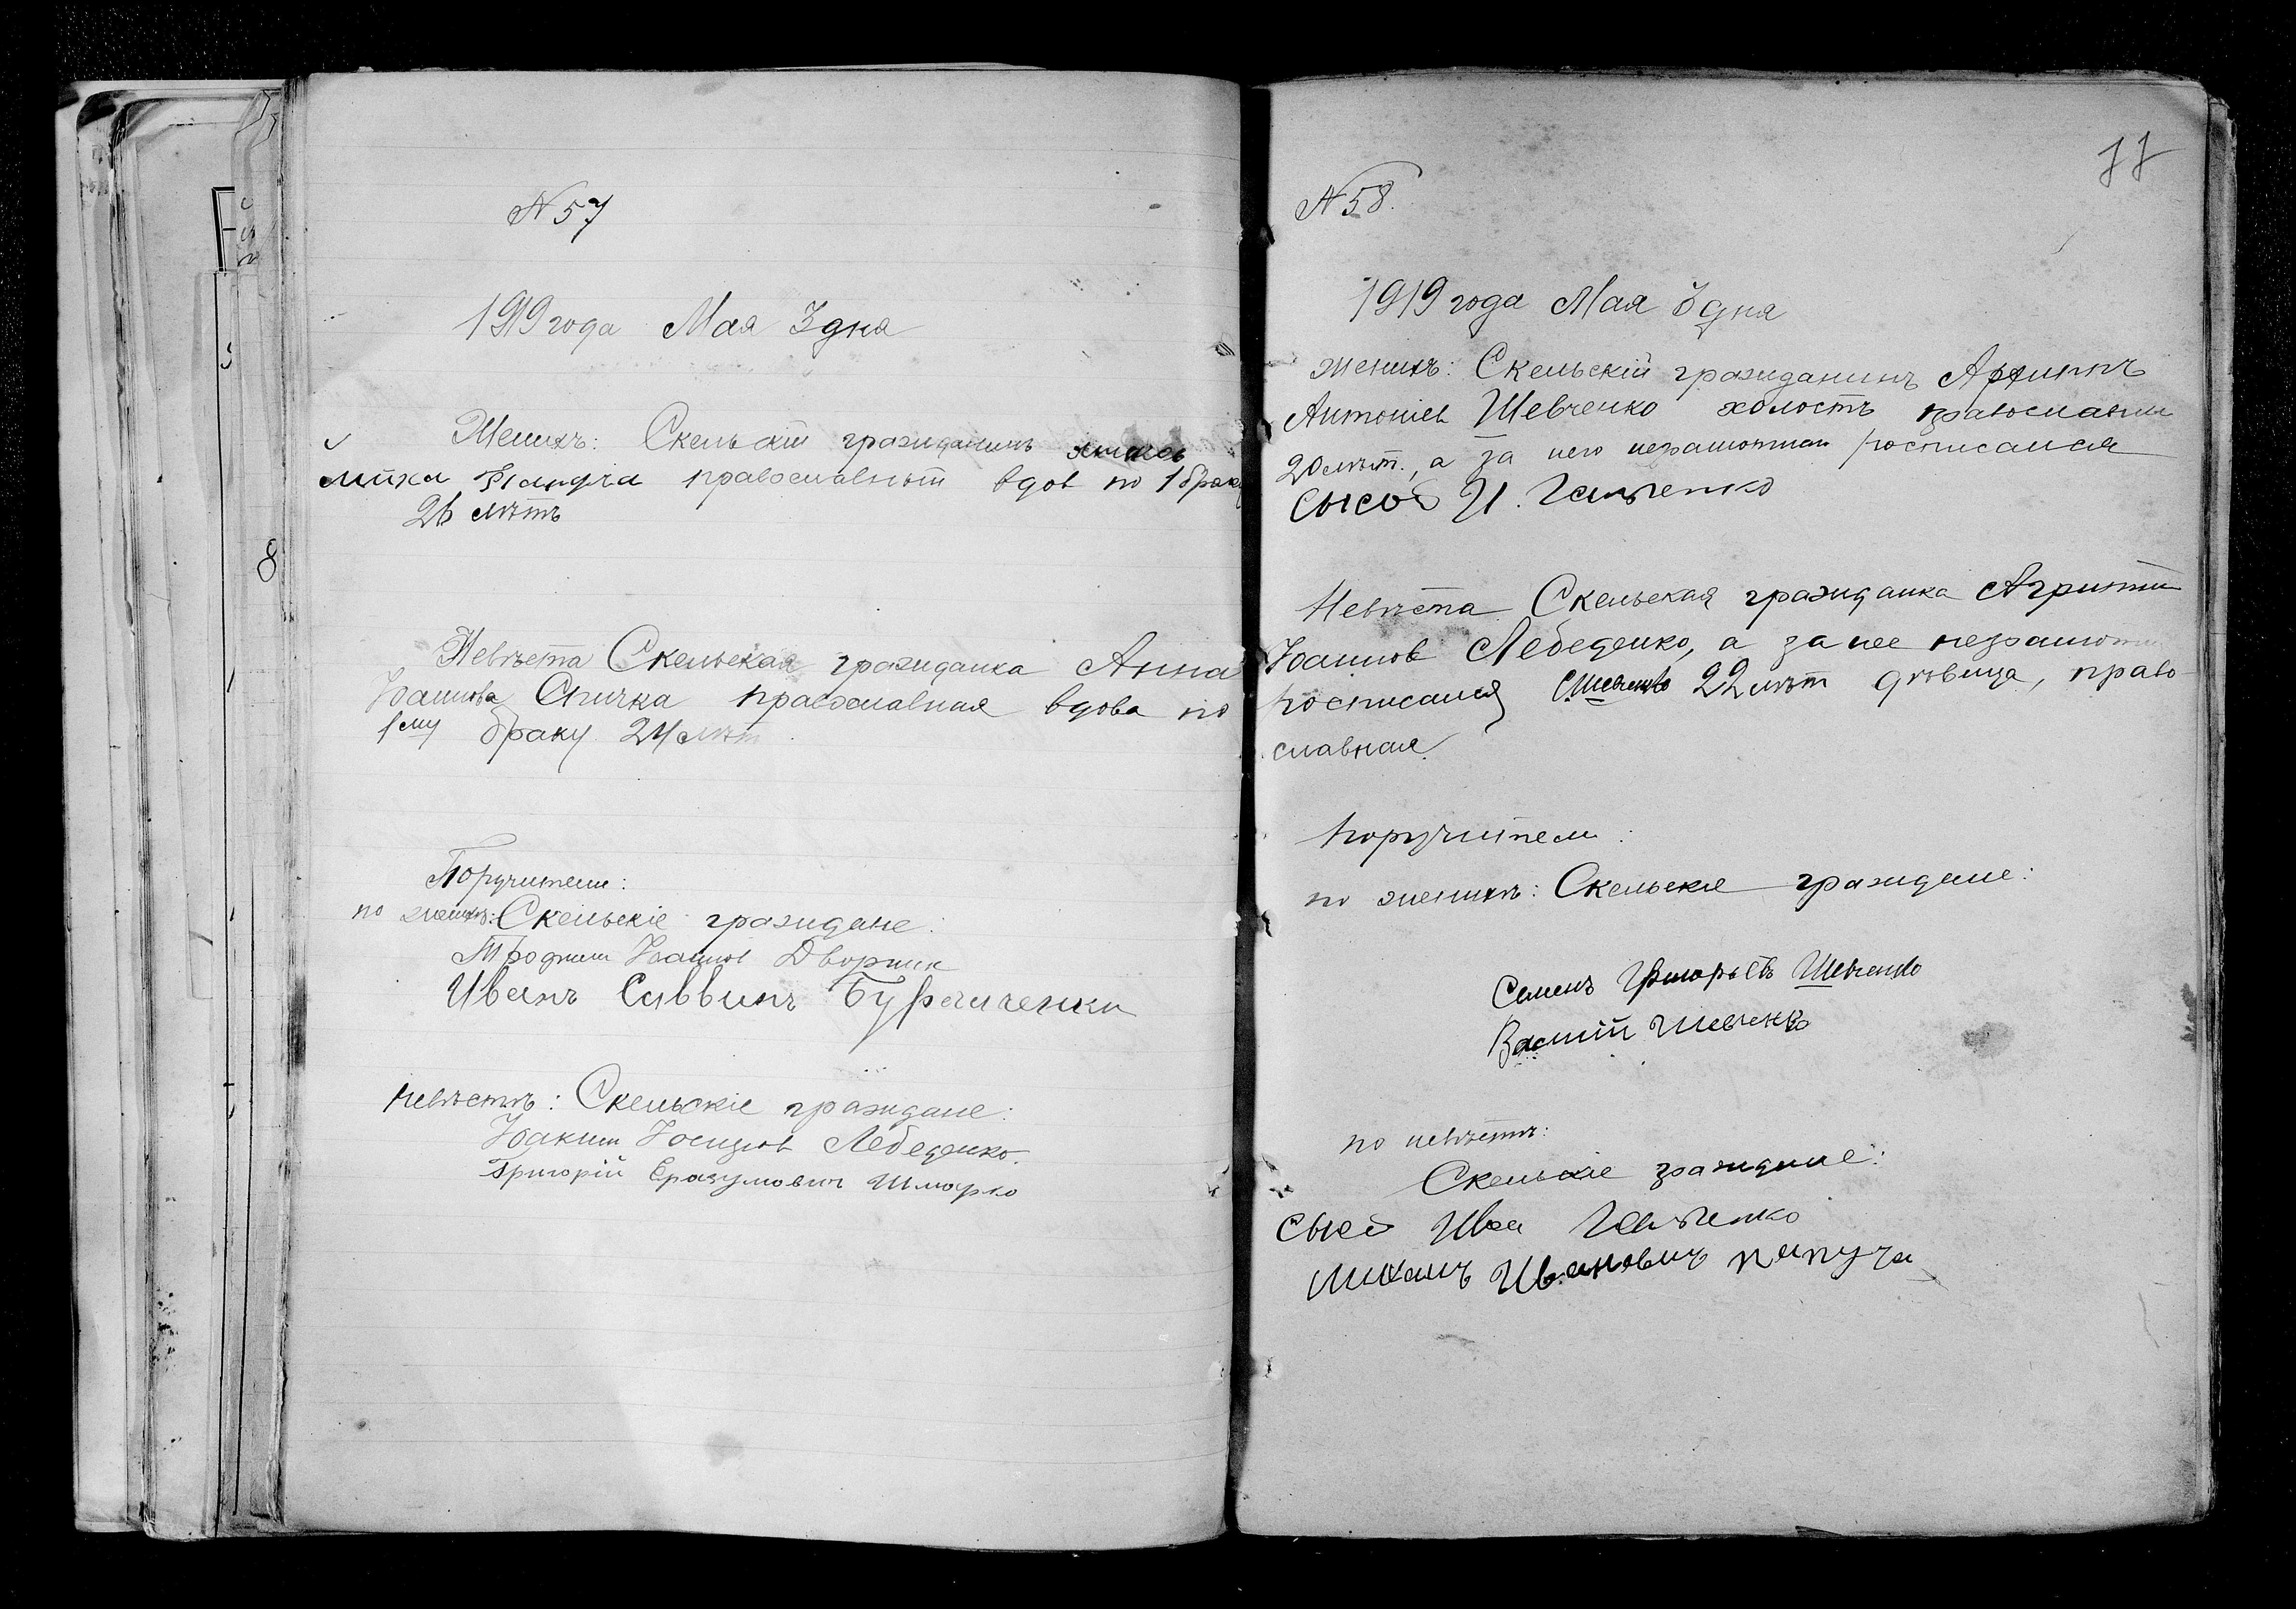 N 57
1919 года Мая 3 дня
Женихъ: Скельскій гражданинъ
православный вдов по 1 браку
26 лѣтъ
Невѣста Скельская гражданка Анна
Іоаннова Спичка православная вдова по
1ему браку 24 лѣт.
Поручители:
по женихѣ: Скельскіе граждане:
Трофим Іоаннов Дворник
Иванъ Саввинъ
невѣстѣ: Скельскіе граждане:
Іоаким Іосифов Лебеденко.
Григорій Еразумович Шмарко
8
77
N 58.
1919 года Мая 3 дня
женихъ: Скельскій гражданинъ Архиппъ
Антоніев Шевченко холостъ православный
20 лѣт., а за него неграмотнаго росписался
Сысой И.
Невѣста Скельская гражданка
Іоаннов Лебеденко, а за нее неграмотн
росписался С Шевченко 22 лѣт дѣвица, право-
славная.
поручители:
по женихѣ: Скельскіе граждане:
Семенъ Шевченко
Василій Шевченко
по невѣстѣ:
Скельскіе граждане:
Сысой Ива
Михаилъ Ивановичъ Папуча